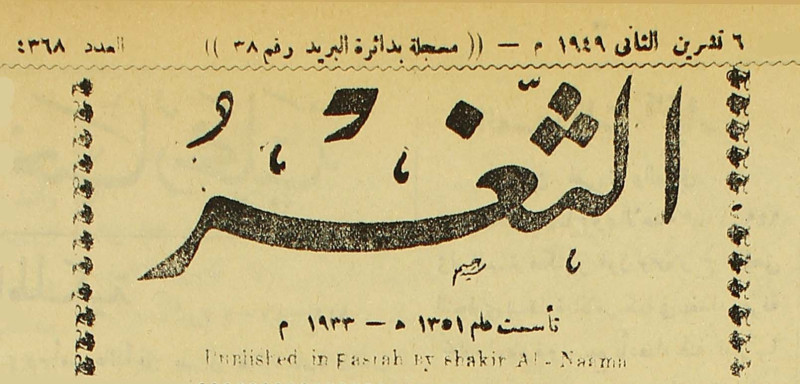 ٦ تشرين الثانى ١٩٤٩ م — (( مسجلة بدائرة البريد رقم ٣٨ )) العدد ٤٣٦٨
الثَّغْرُ
رحيم
تأسست عام ١٣٥١ ه — ١٩٣٣ م
Published in Basrah by shakir Al - Naama